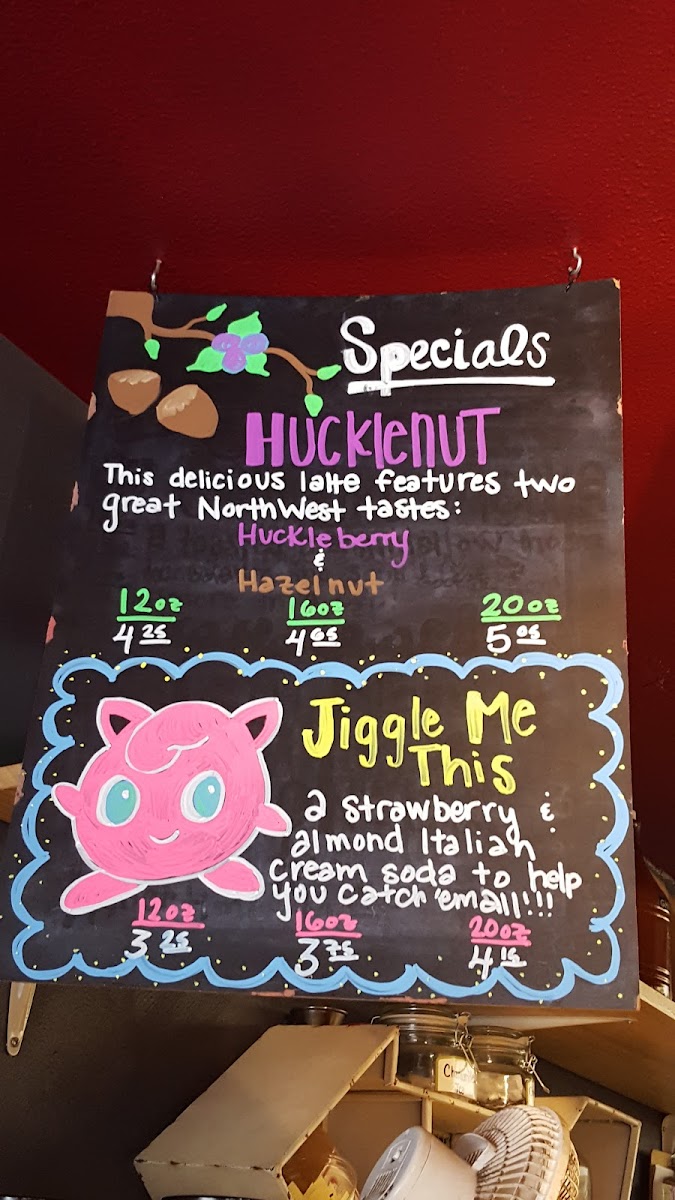 Specials
HUCKlENUT
This delicious latte features two
great NorthWest tastes:
Huckleberry
&
Hazelnut
12oz 16oz 20oz
4 25 4 65 5 05
Jiggle Me
This
a strawberry &
almond Italian
cream soda to help
you catch 'emall!!!
12oz 16oz 20oz
3 25 3 75 4 15